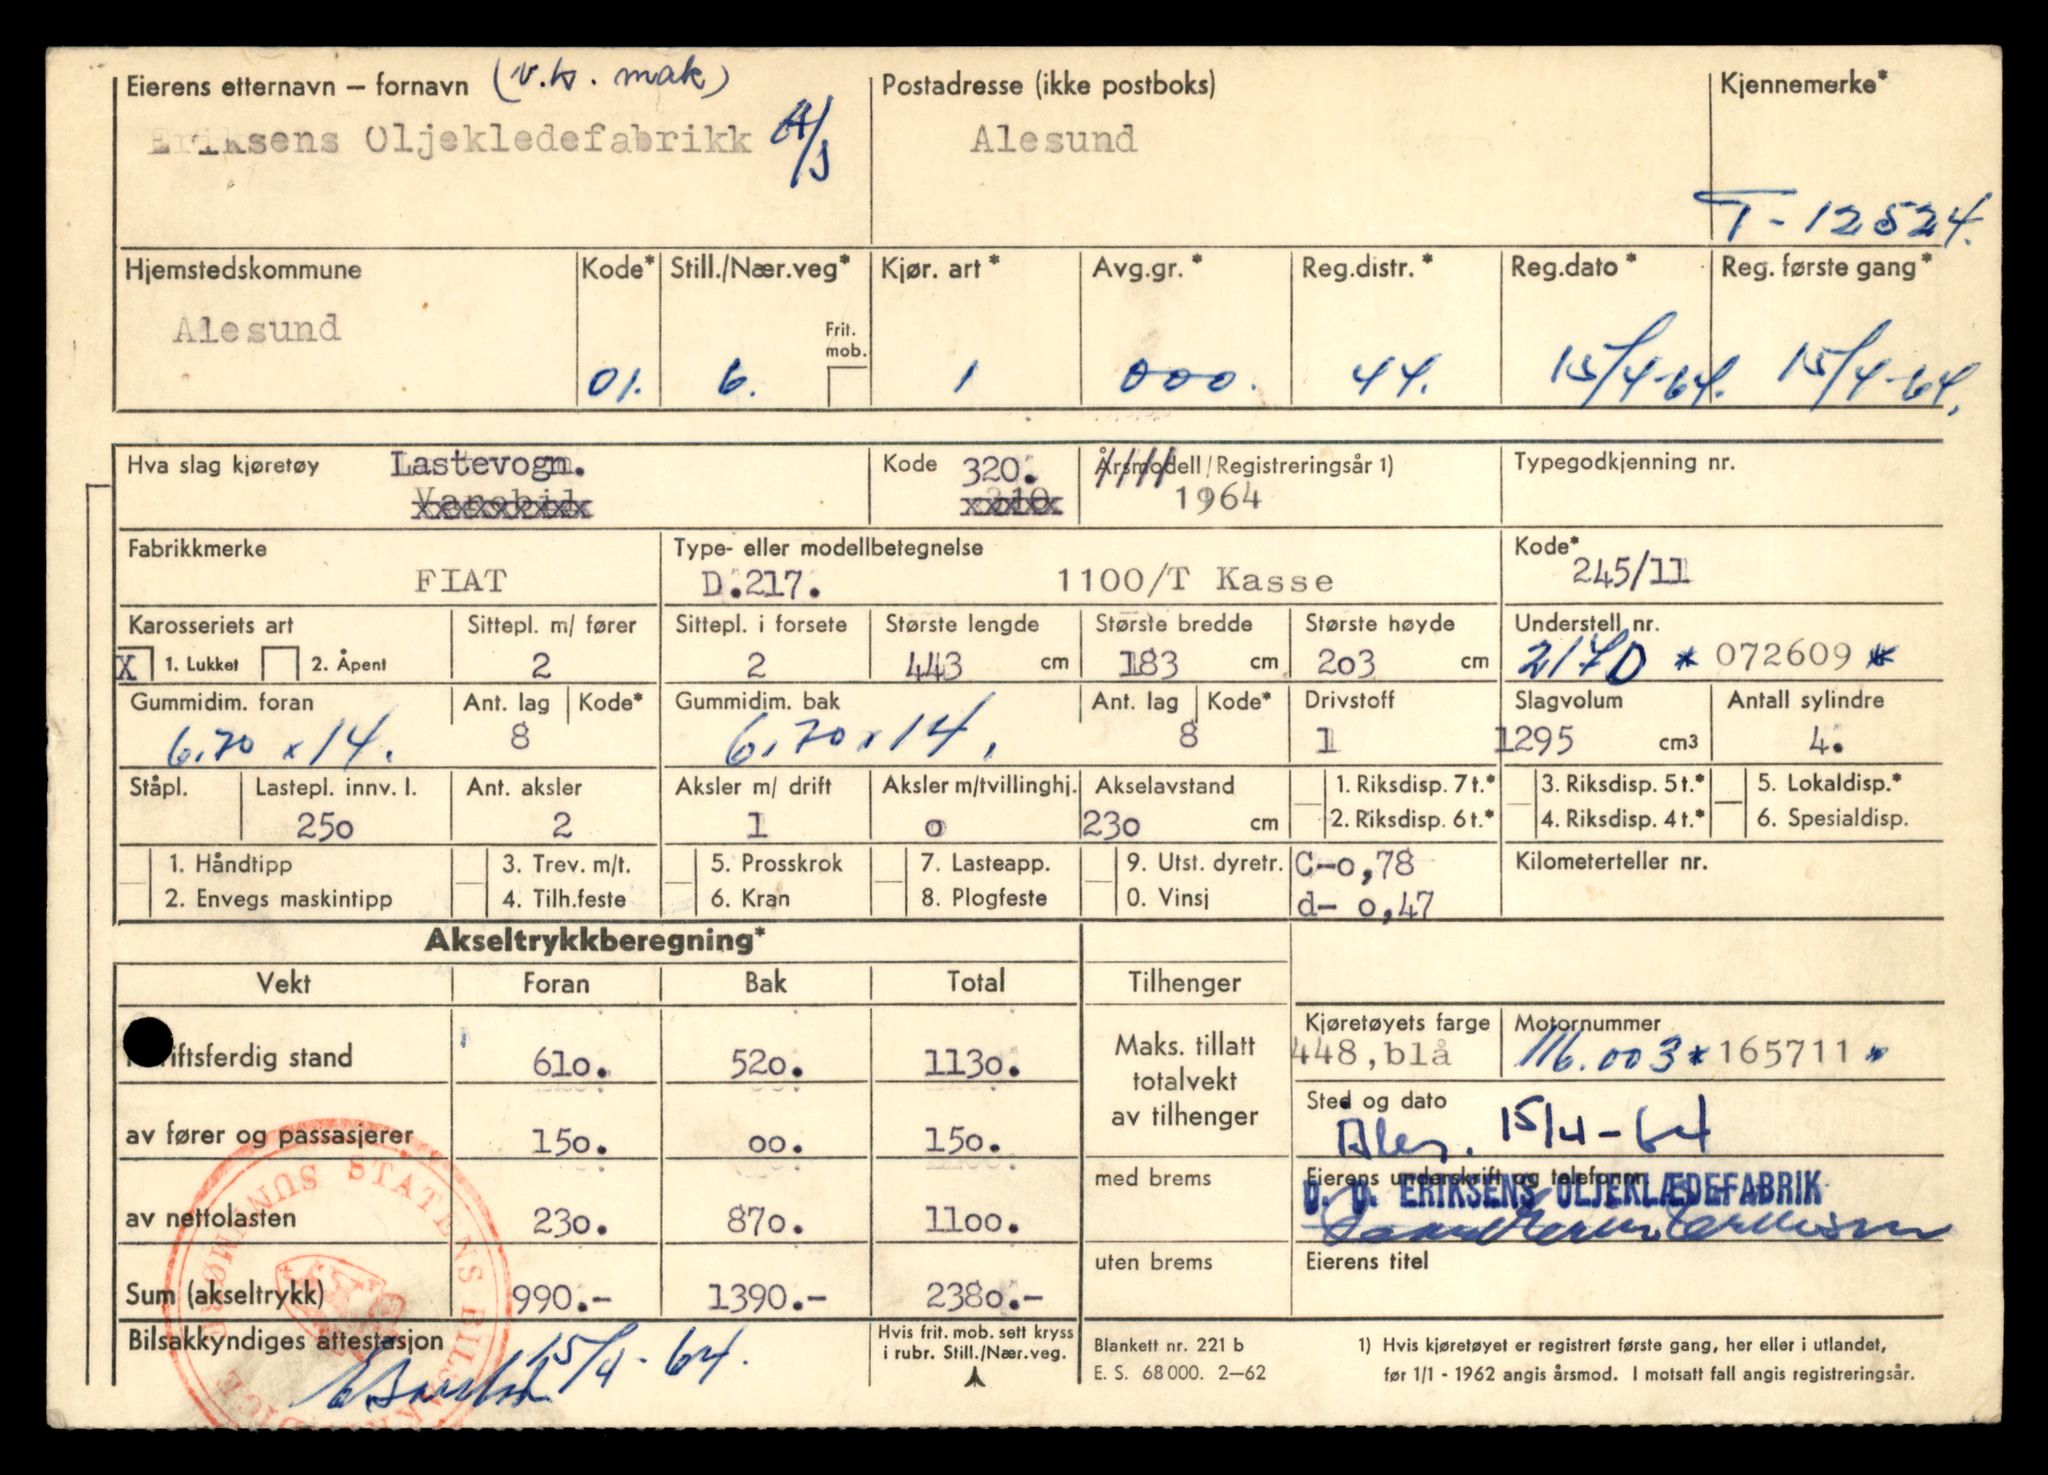 Eierens etternavn – fornavn (v.ts. mak) Postadresse (ikke postboks) Kjennemerke*
Eriksens Oljekledefabrikk A/S Alesund
T-12524.
Hjemstedskommune Kode* Still./Nær.veg* Kjør. art* Avg.gr.* Reg.distr.* Reg.dato* Reg. første gang*
Alesund Frit. mob.
01. 6. 1 000. 44. 15/4-64. 15/4-64.
Hva slag kjøretøy Lastevogn. Kode 320. Årsmodell/Registreringsår 1) Typegodkjenning nr.
Varebil 310 1964
Fabrikkmerke Type- eller modellbetegnelse Kode*
FIAT D.217. 1100/T Kasse 245/11
Karosseriets art Sittepl. m/ fører Sittepl. i forsete Største lengde Største bredde Største høyde Understell nr.
X 1. Lukket 2. Åpent 2 2 443 cm 183 cm 203 cm 217D * 072609 *
Gummidim. foran Ant. lag Kode* Gummidim. bak Ant. lag Kode* Drivstoff Slagvolum Antall sylindre
6.70 x 14. 8 6.70 x 14. 8 1 1295 cm3 4.
Ståpl. Lastepl. innv. l. Ant. aksler Aksler m/ drift Aksler m/tvillinghj. Akselavstand 1. Riksdisp. 7 t.* 3. Riksdisp. 5 t.* 5. Lokaldisp.*
250 2 1 0 230 cm 2. Riksdisp. 6 t.* 4. Riksdisp. 4 t.* 6. Spesialdisp.
1. Håndtipp 3. Trev. m/t. 5. Prosskrok 7. Lasteapp. 9. Utst. dyretr. C-0,78 Kilometerteller nr.
2. Envegs maskintipp 4. Tilh.feste 6. Kran 8. Plogfeste 0. Vinsj d- 0,47
Akseltrykkberegning*
Vekt Foran Bak Total Tilhenger
Kjøretøyets farge Motornummer
iftsferdig stand 610. 520. 1130. Maks. tillatt totalvekt av tilhenger 448, blå 116.003 * 165711 *
Sted og dato
av fører og passasjerer 150. 00. 150. Åles. 15/4-64
med brems Eierens underskrift og telefonnr.
O. D. ERIKSENS OLJEKLÆDEFABRIK
av nettolasten 230. 870. 1100.
uten brems Eierens titel
Sum (akseltrykk) 990.- 1390.- 2380.-
Bilsakkyndiges attestasjon Hvis frit. mob. sett kryss i rubr. Still./Nær.veg. Blankett nr. 221 b 1) Hvis kjøretøyet er registrert første gang, her eller i utlandet,
15/4-64. E. S. 68 000. 2–62 før 1/1 - 1962 angis årsmod. I motsatt fall angis registreringsår.
STATENS BILSAKKYNDIGE SUNNMØRE